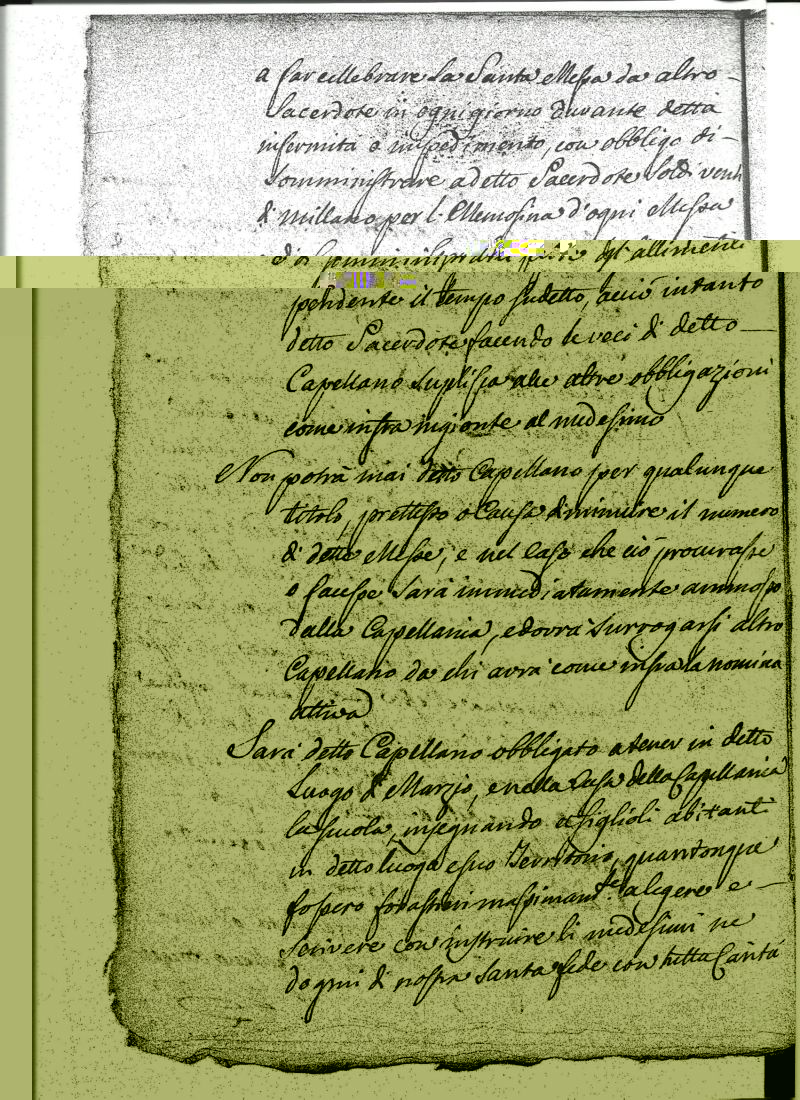 a far cellebrare la Santa Messa da altro
Sacerdote in ogni giorno durante detta
infermità o impedimento, con obbligo di
somministrare a detto Sacerdote soldi venti
di millano per l'Elemosina d'ogni Messa
allimenti
pendente il tempo sudetto, acciò intanto
detto Sacerdote facendo le veci di detto
Capellano suplissa alle altre obbligazioni
come infra ingionte al medesimo
Non potrà mai detto Capellano per qualunque
titolo, prettesto o Causa diminuire il numero
di dette Messe, e nel caso che ciò procurasse
o facesse sarà immediatamente ammosso
dalla Capellania, e dovrà surrogarsi altro
Capellano da chi avrà come infra la nomina
attiva
Sarà detto Capellano obbligato a tener in detto
Luogo di Marzio, e nella Casa della Capellania
la scuola, insegnando a figlioli abitanti
in detto luogo e suo Territorio, quantonque
fossero forastieri massimam.te a legere e
scrivere con instruire li medesimi ne
dogmi di nostra Santa fede con tutta Carità